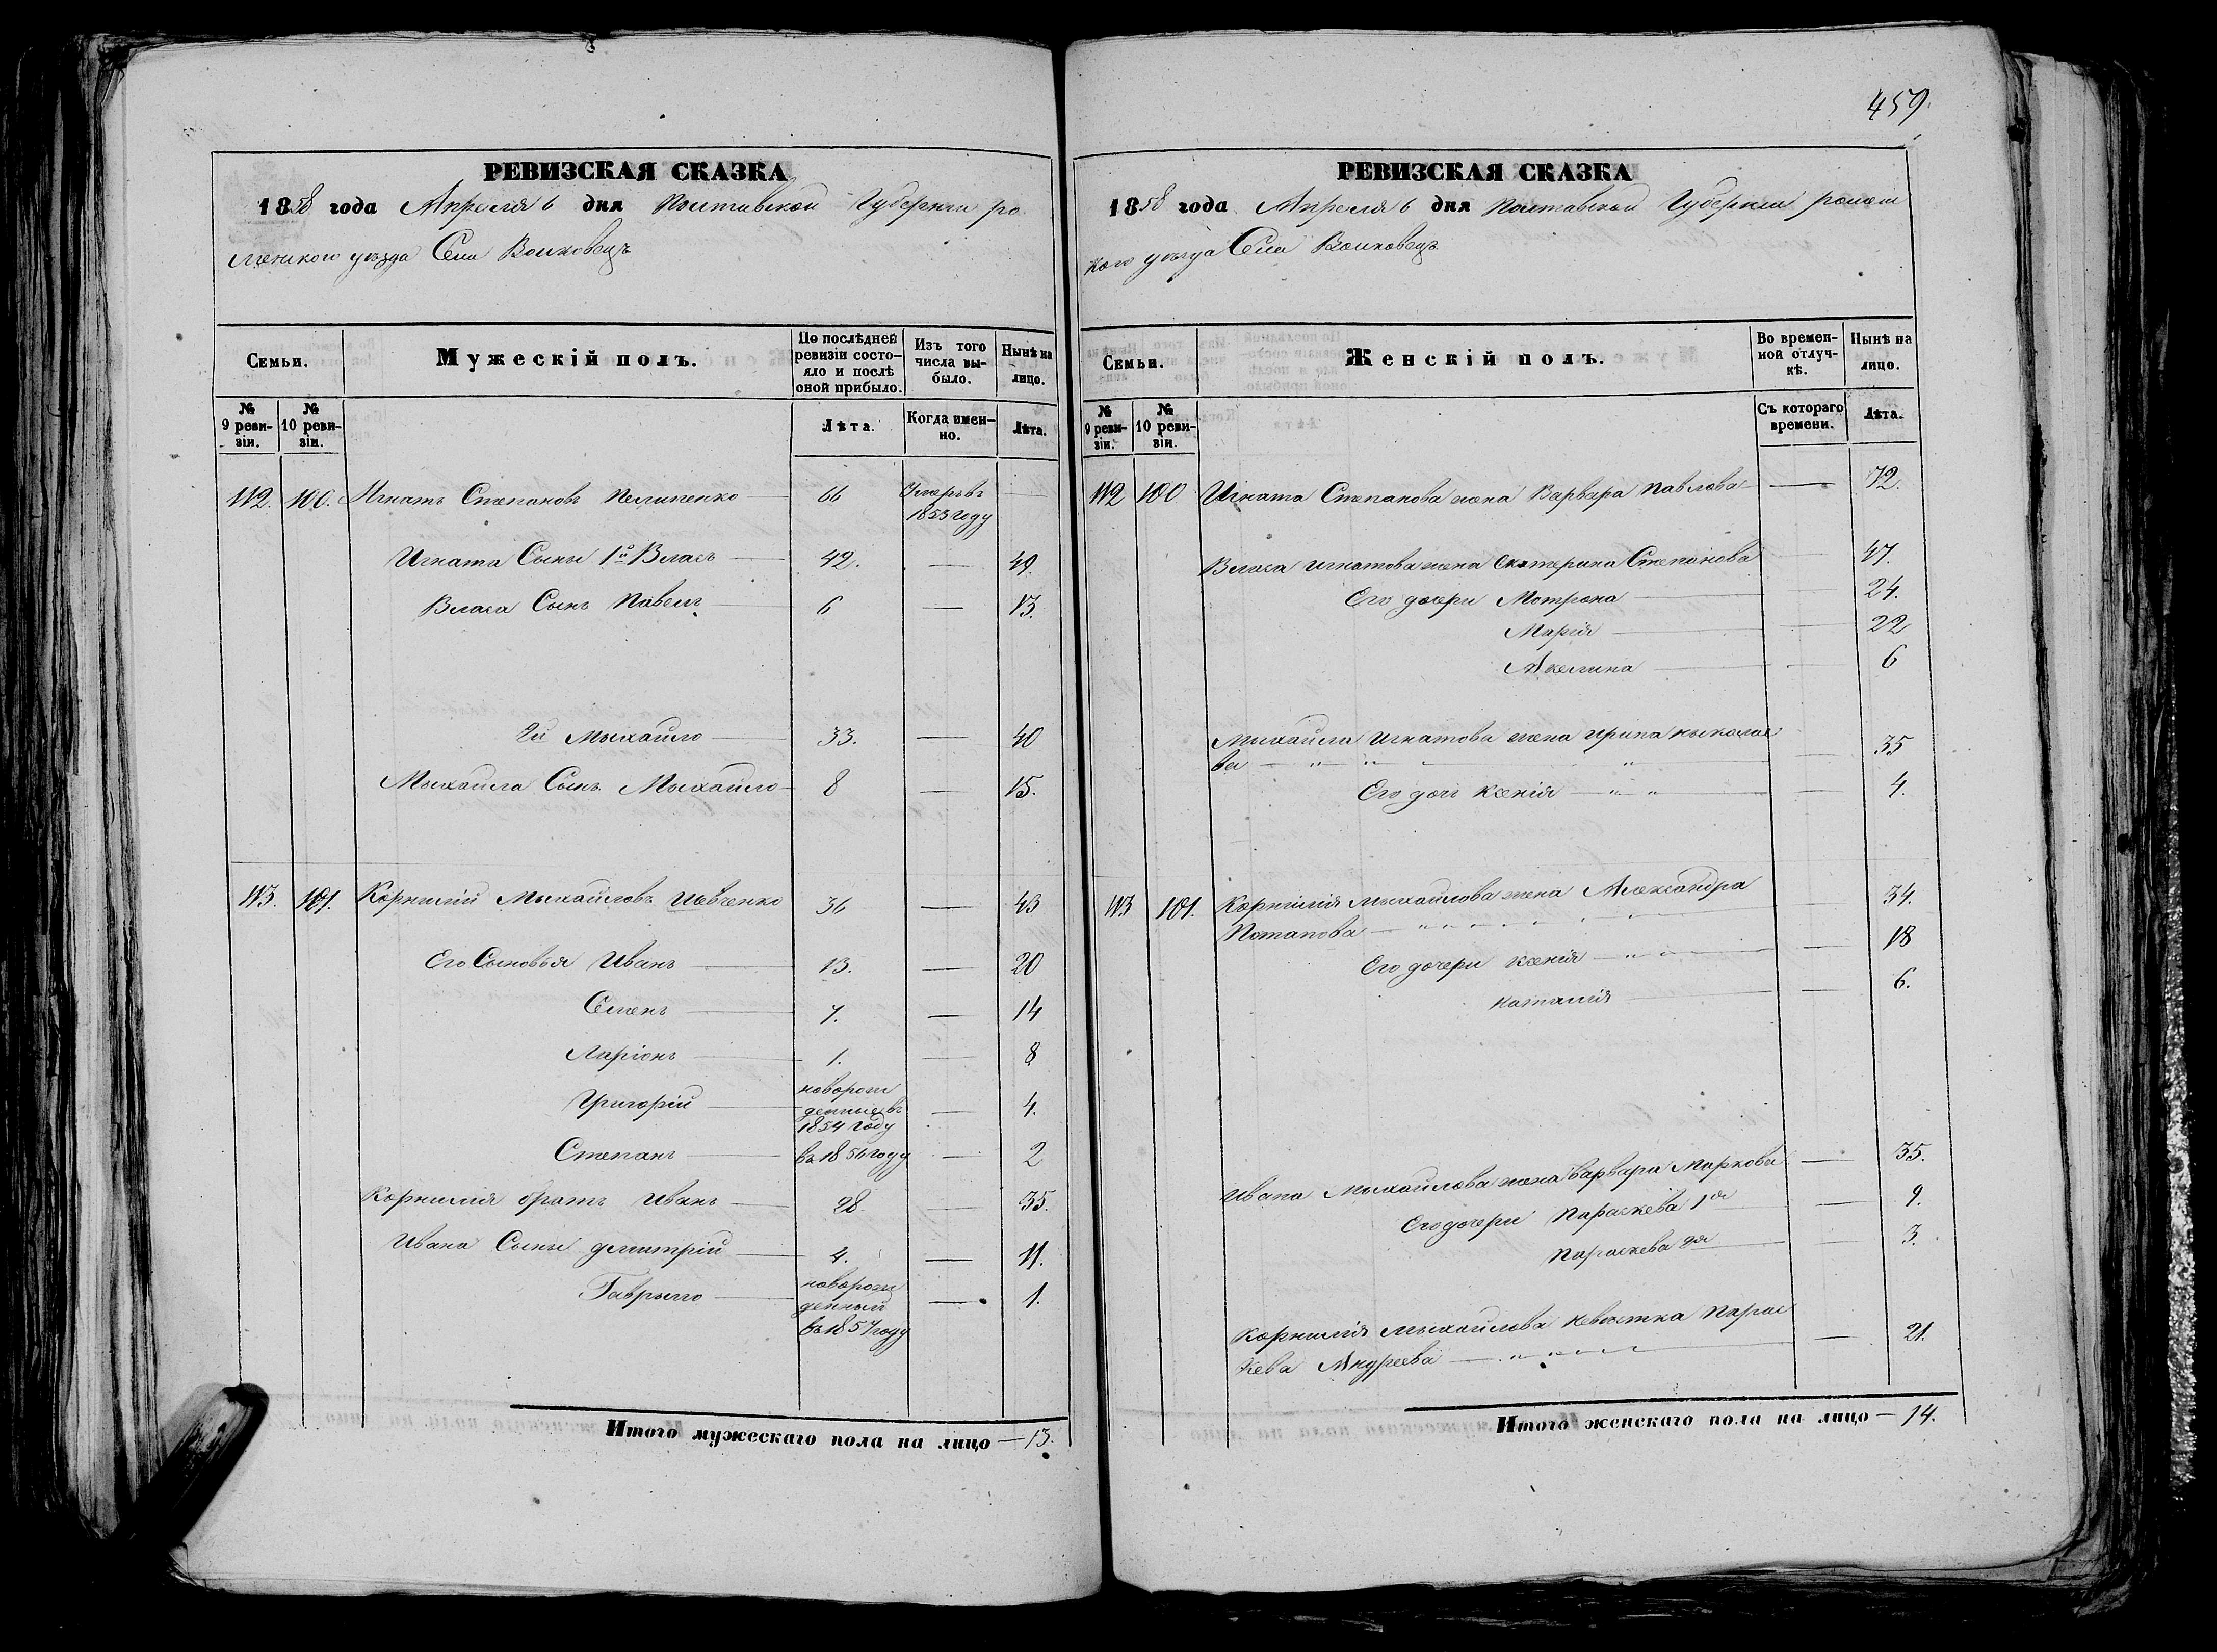 РЕВИЗСКАЯ СКАЗКА
1858 года Апреля 6 дня Полтавской Губернии ро
менского уезда Села Волковецъ
Семьи.
Мужескій полъ.
По послѣдней
ревизіи состо-
яло и послѣ
оной прибыло.
Изъ того
числа вы-
было.
Нынѣ на
лицо.
№
9 реви-
зіи.
№
10 реви-
зіи.
Лѣта.
Когда имен-
но.
Лѣта.
112. 100. Игнатъ Степановъ Пилипенко 66 Умеръ въ
1853 году
Игната Сыны 1й Власъ 42. — 49.
Власа Сынъ Павелъ 6 — 13.
2й Мыхайло 33. — 40
Мыхайла Сынъ Мыхайло 8 — 15.
113. 101. Корнилій Мыхайловъ Шевченко 36 — 43
Его Сыновья Иванъ 13. — 20
Семенъ 7. — 14
Ларіонъ 1. — 8
Григорій новорож
денные въ
1854 году — 4.
Степанъ въ 1856 году — 2
Корнилія братъ Иванъ 28 — 35.
Ивана Сыны Дмитрій 4. — 11.
Гаврыло новорож
денный
въ 1857 году — 1.
Итого мужескаго пола на лицо — 13.
459.
РЕВИЗСКАЯ СКАЗКА
1858 года Апреля 6 дня Полтавской Губернии ромен
кого уезда Села Волковецъ
Семьи.
Женскій полъ.
Во времен-
ной отлуч-
кѣ.
Нынѣ на
лицо.
№
9 реви-
зіи.
№
10 реви-
зіи.
Съ котораго
времени.
Лѣта.
112 100 Игната Степанова жена Варвара Павлова — 72.
Власа Игнатова жена Екатерина Степанова 47.
Его дочери Мотрона 24.
Марія 22
Акелина 6
Мыхайла Игнатова жена Ирина Николае
ва — 35
Его дочь Ксенія — 4.
113 101. Корнилія Мыхайлова жена Александра
Потапова 34.
Его дочери Ксенія — 18
Наталія — 6.
Ивана Мыхайлова жена Варвара Маркова — 35.
Его дочери Параскева 1я — 9.
Параскева 2я 3.
Корнилія Мыхайлова невестка Парас
кева Андреева — 21.
Итого женскаго пола на лицо — 14.